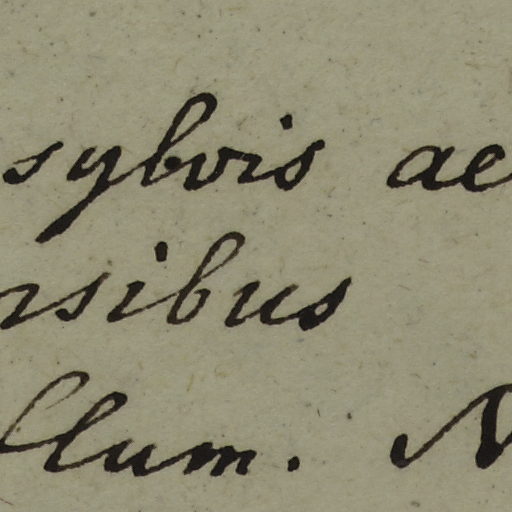 sylvis ae
rsibus
llum. N